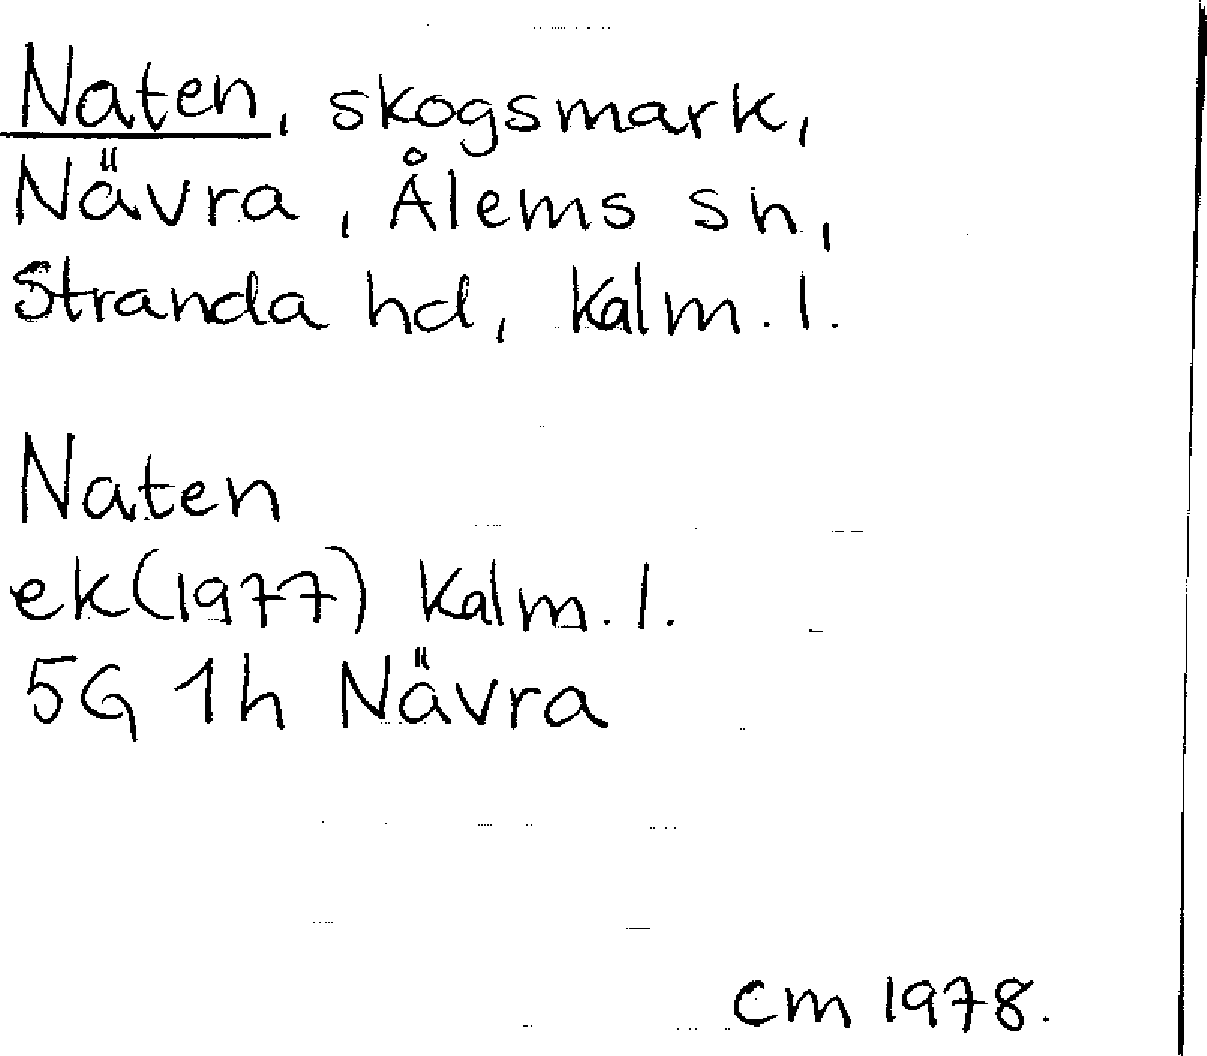 Naten, skogsmark,
Nävra, Ålems sn,
Stranda hd, Kalm. l.
Naten
ek (1977) Kalm. l.
5G 1h Nävra
CM 1978.